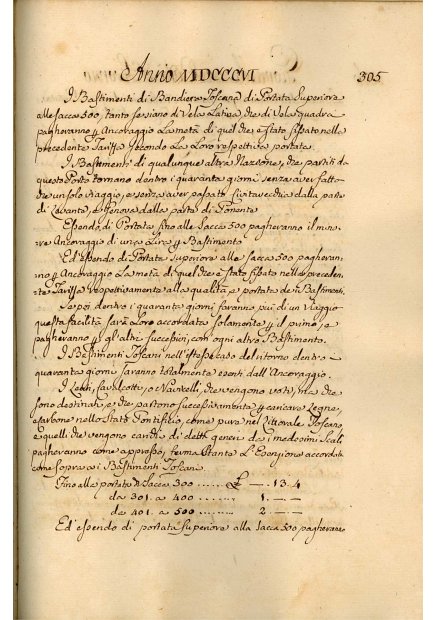 Anno MDCCCVI 305
I Bastimenti di Bandiera Toscana di Portata Superiore
alle sacca 500, tanto se siano di Vela Latina, che di Vela quadra
pagheranno p Ancoraggio la metà di quel che è stato fissato nella
precedente Tariffa secondo la Loro respettiva portata.
I Bastimenti di qualunque altra Nazione, che partiti da
questo Porto tornano dentro i quaranta giorni senza aver fatto
che un solo viaggio, e senza aver passato Civitavecchia dalla parte
di Levante, e Genova dalla parte di Ponente
Essendo di Portata fino alle Sacca 500 pagheranno il mino-
re Ancoraggio di una Lira p Bastimento
Ed essendo di Portata Superiore alle sacca 500 pagheran-
no p Ancoraggio la metà di quel che è stato fissato nella preceden-
te Tariffa respettivamente alla qualità, e portata de ti Bastimenti.
Se poi dentro i quaranta giorni faranno più di un Viaggio
questa facilità sarà Loro accordata solamente p il primo, e
pagheranno p gl'altri successivi, con ogni altro Bastimento.
I Bastimenti Toscani nell'istesso caso del ritorno dentro
quaranta giorni saranno totalmente esenti dall'Ancoraggio.
I Leuti, Navicelli, che vengono voti, ma che
sono destinati, e che partono successivamente p caricare Legne,
e Carbone nello Stato Pontificio, come pure nel Littorale Toscano,
e quelli che vengono carichi di detti generi da i medesimi Scali
pagheranno come appresso, ferma stante l'Esenzione accordata
come sopra a i Bastimenti Toscani.
Fino alla portata di Sacca 300 ........ £ —. 13. 4
da 301. a 400 ........ 1. —. —
da 401. a 500 ........ 2. —. —
Ed essendo di portata superiore alla sacca 500 pagheranno